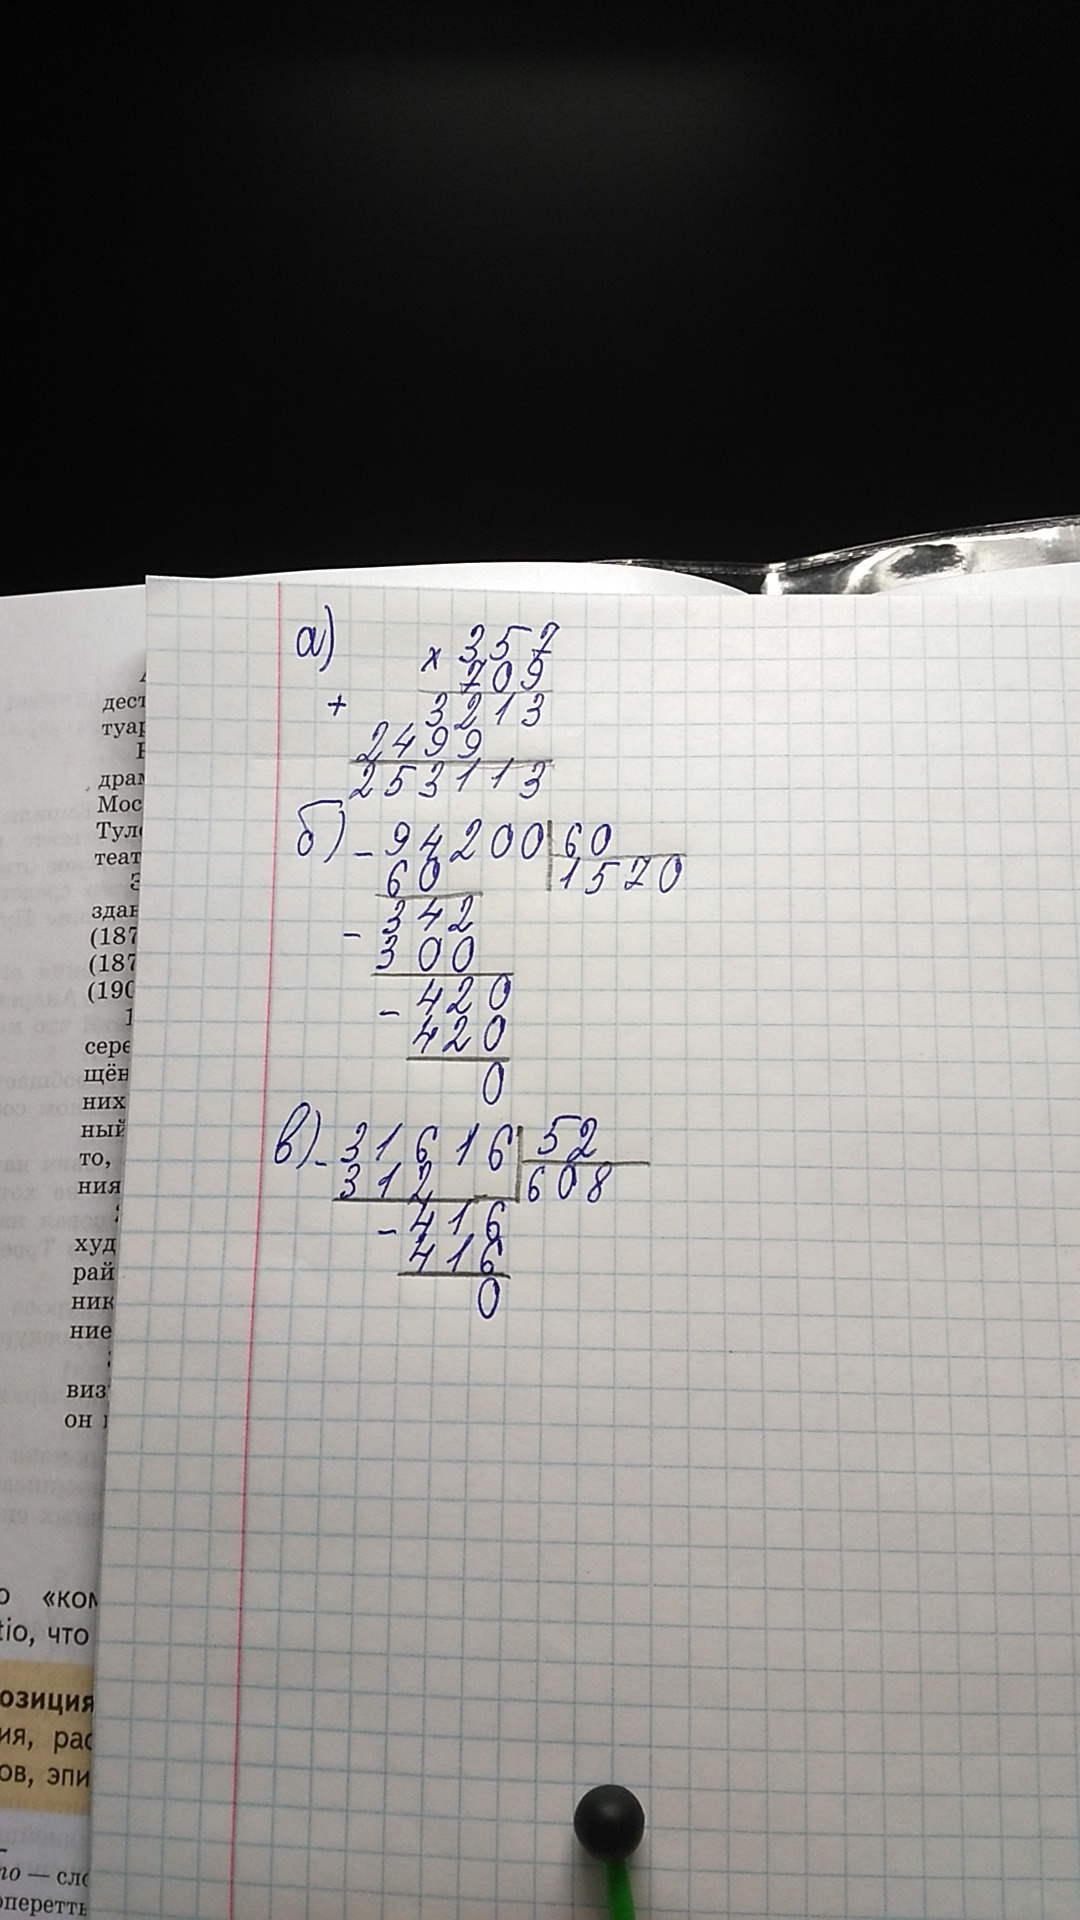 а)
× 357
709
+ 3213
2499
253113
б) - 94200 | 60
60 | 1570
- 342
300
- 420
420
0
в) - 31616 | 52
312 | 608
- 416
416
0
дест
туар
драм
Мос
Туло
теат
здан
(187
(187
(190
сере
щён
них
ный
то,
ния
худ
рай
ник
ние
виз
он
о «ком
tio, что
озиция
ия, рас
ов, эпи
то — сло
оперетты